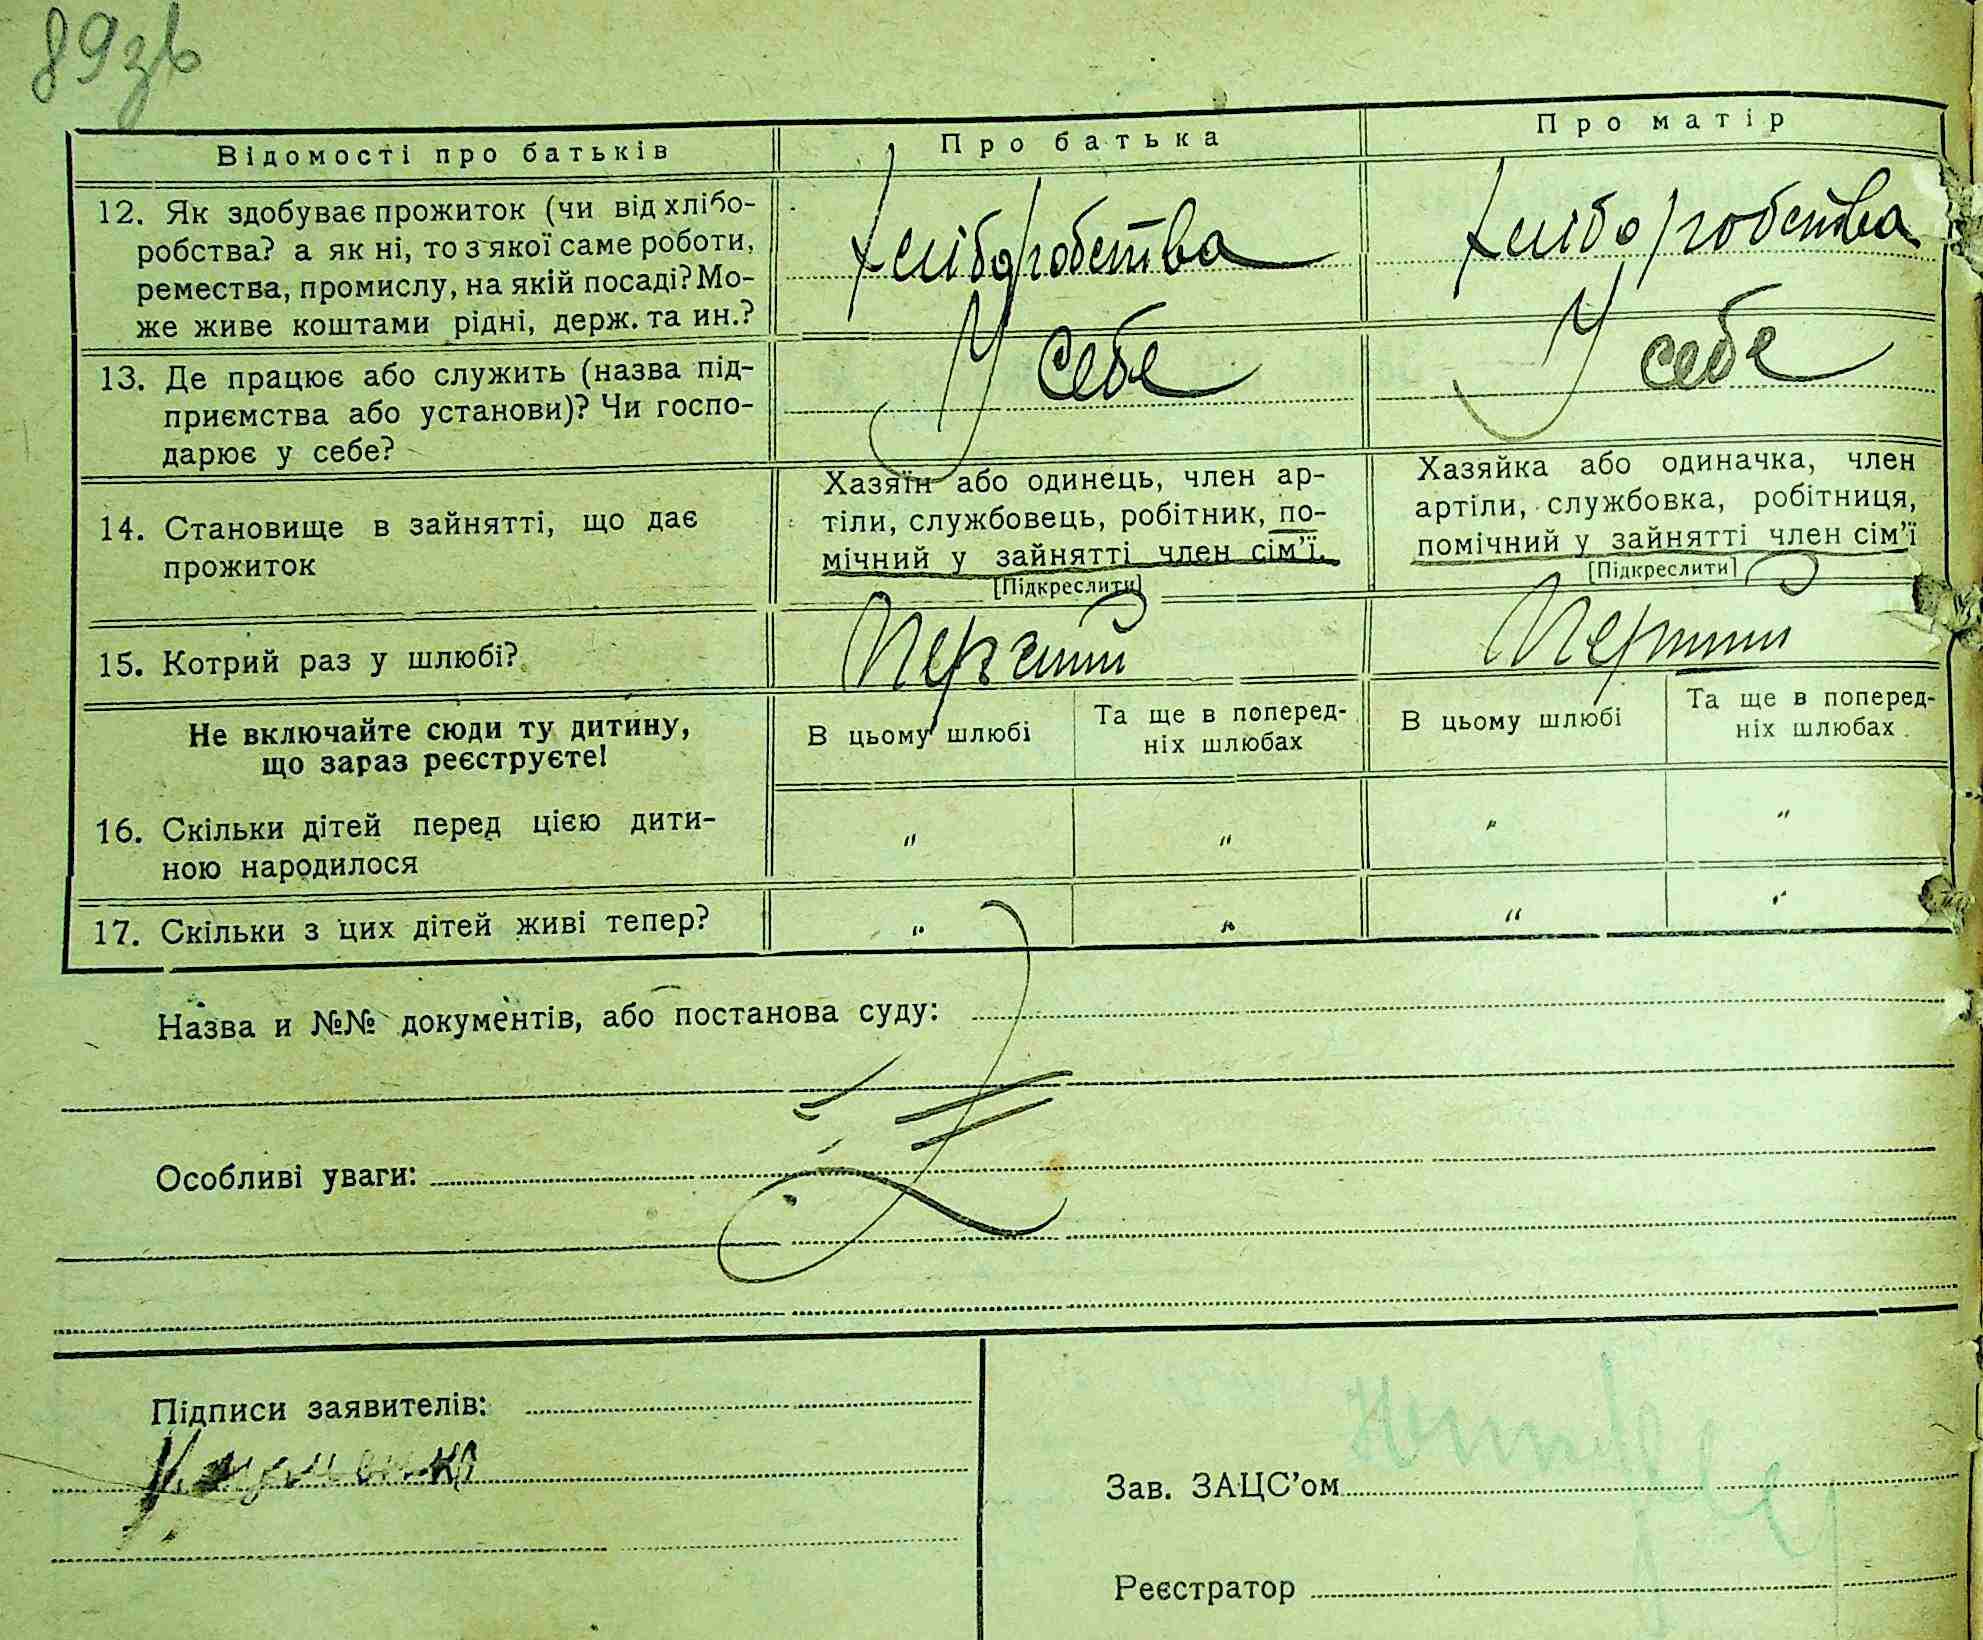 89зв
Відомості про батьків
Про батька
Про матір
12. Як здобуває прожиток (чи від хлібо-
робства? а як ні, то з якої саме роботи,
ремества, промислу, на якій посаді? Мо-
же живе коштами рідні, держ. та ин.?
Хліборобства
Хліборобства
13. Де працює або служить (назва під-
приємства або установи)? Чи госпо-
дарює у себе?
У себе
У себе
14. Становище в зайнятті, що дає
прожиток
Хазяїн або одинець, член ар-
тіли, службовець, робітник, по-
мічний у зайнятті член сім'ї.
[Підкреслити]
Хазяйка або одиначка, член
артіли, службовка, робітниця,
помічний у зайнятті член сім'ї
[Підкреслити]
15. Котрий раз у шлюбі?
Перший
Перший
Не включайте сюди ту дитину,
що зараз реєструєте!
В цьому шлюбі
Та ще в поперед-
ніх шлюбах
В цьому шлюбі
Та ще в поперед-
ніх шлюбах
16. Скільки дітей перед цією дити-
ною народилося
" " " "
17. Скільки з цих дітей живі тепер?
" " " "
Назва и №№ документів, або постанова суду:
Особливі уваги:
Підписи заявителів:
Зав. ЗАЦС'ом
Реєстратор